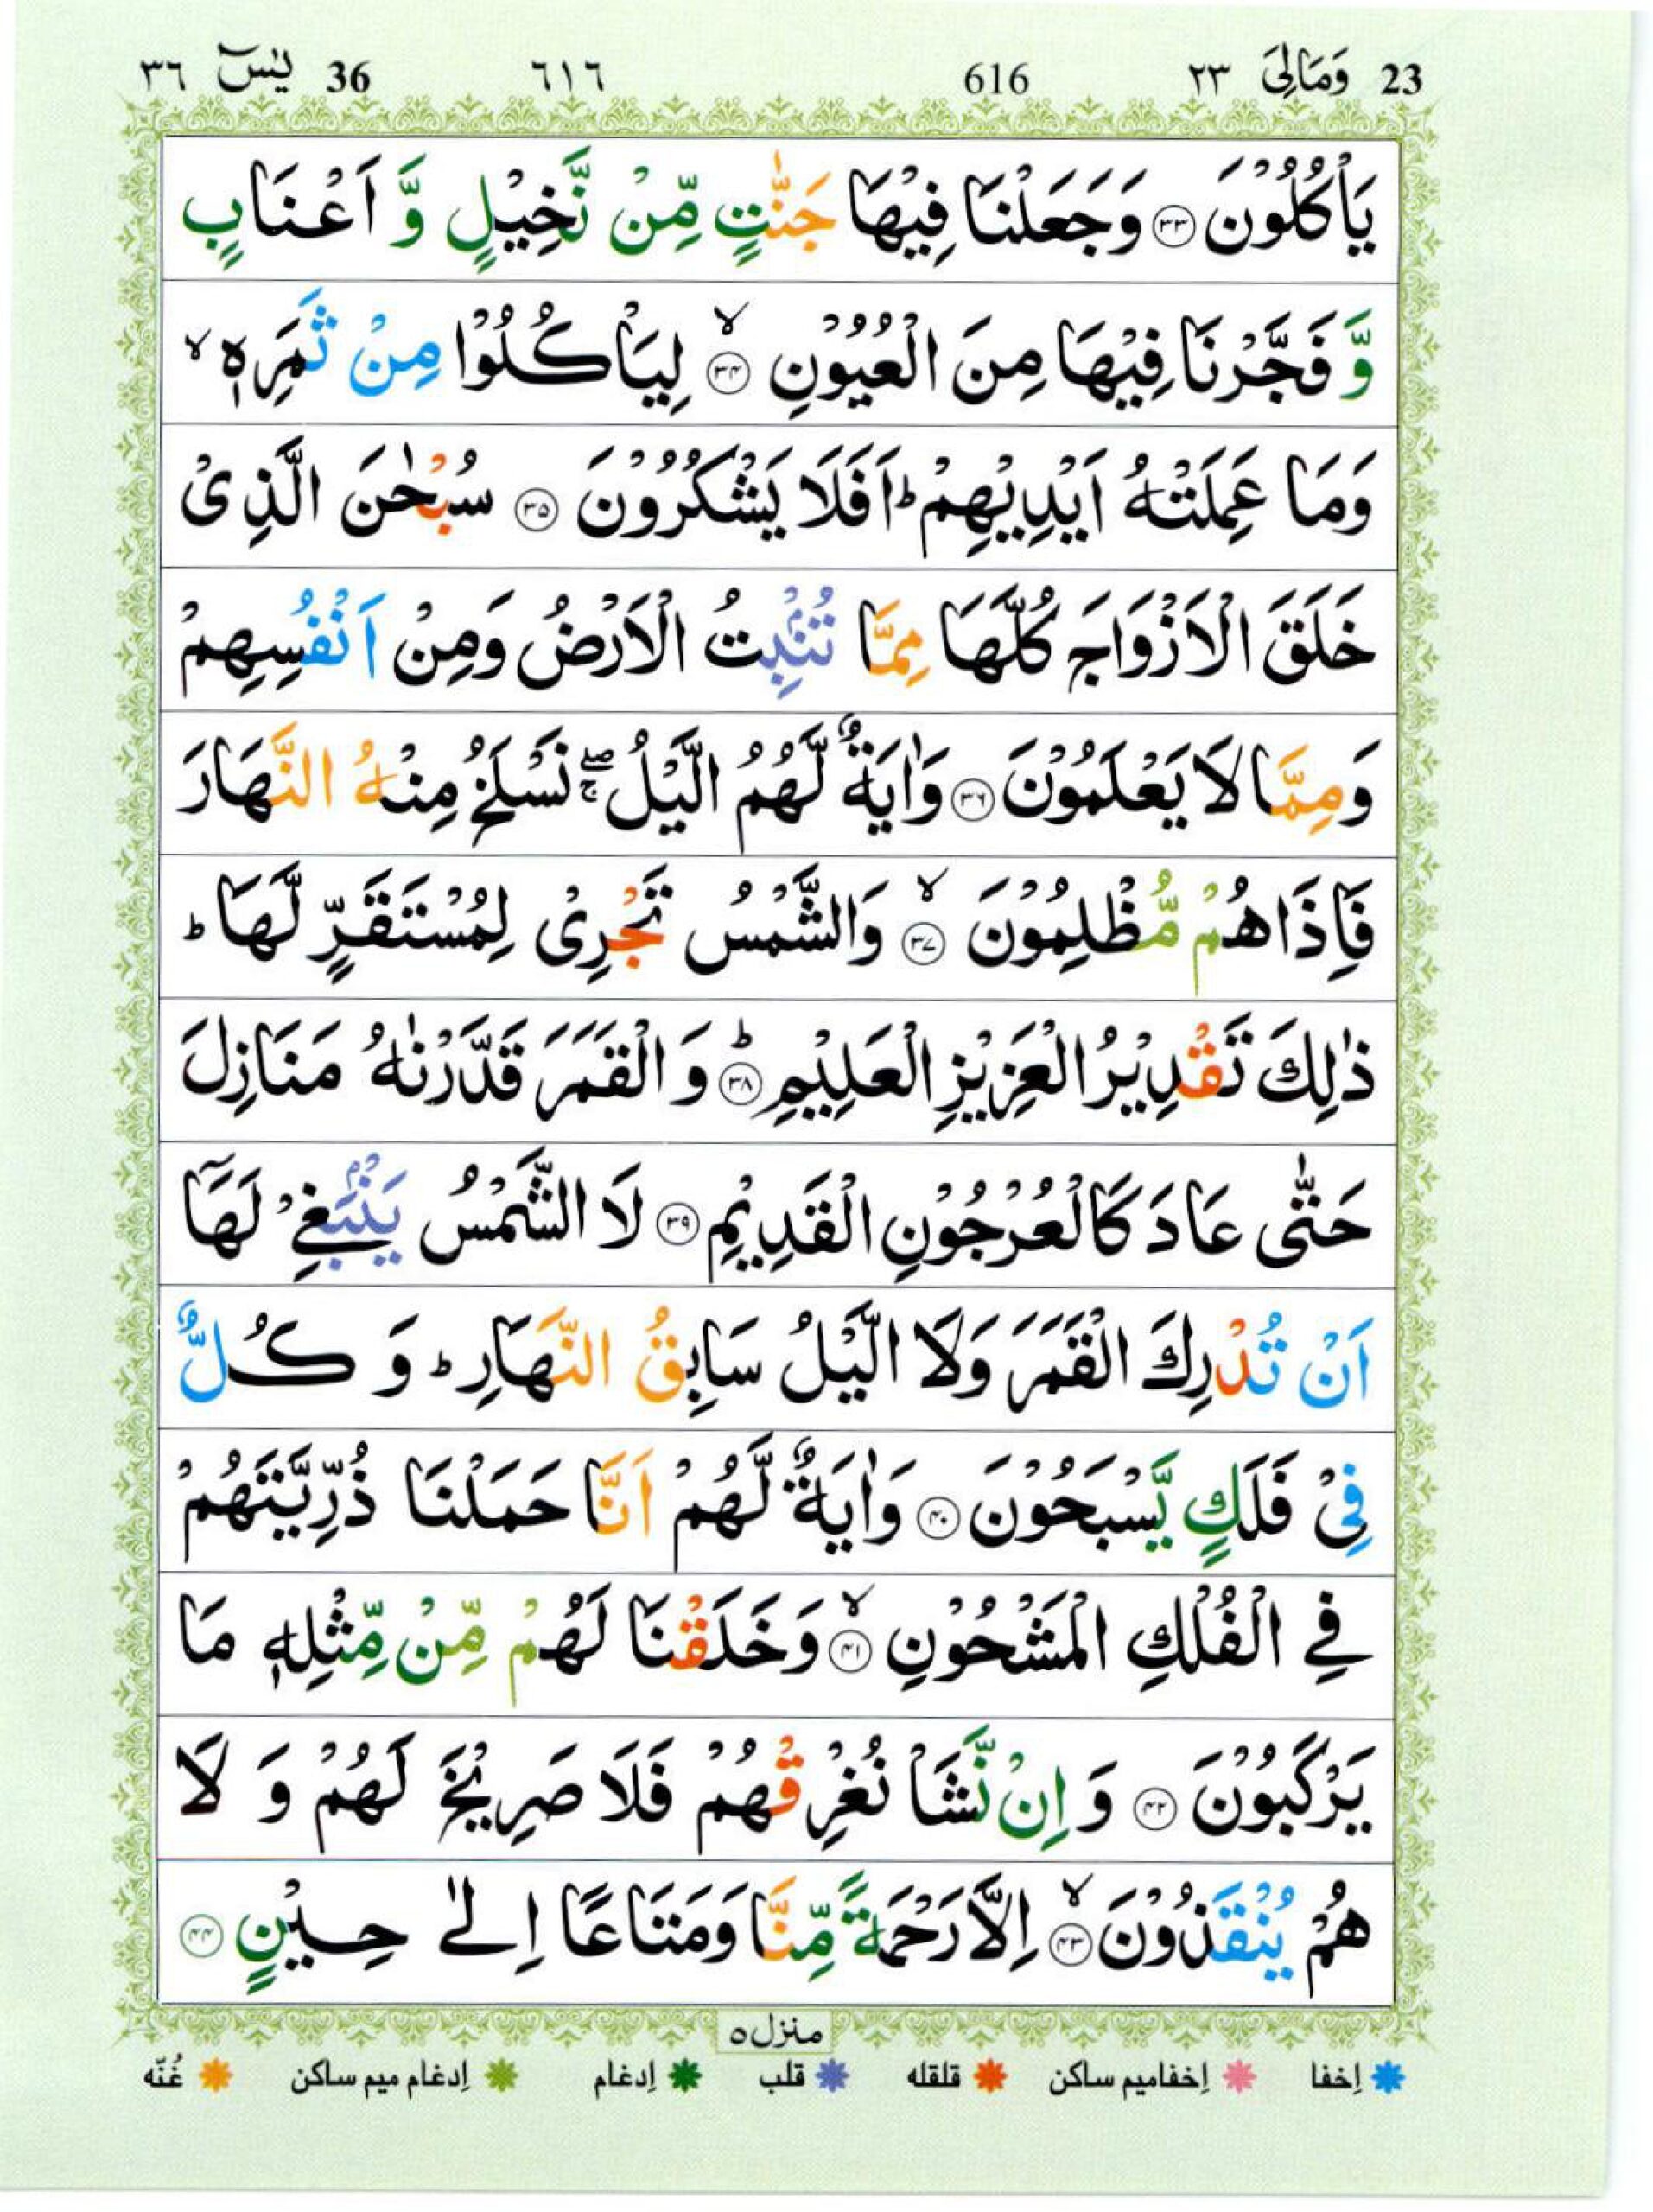 23 وَمَالِیَ ٢٣ 616 ٦١٦ 36 یٰسٓ ٣٦
یَاْكُلُوْنَ ﴿۳۳﴾ وَجَعَلْنَا فِیْهَا جَنّٰتٍ مِّنْ نَّخِیْلٍ وَّ اَعْنَابٍ
وَّ فَجَّرْنَا فِیْهَا مِنَ الْعُیُوْنِ ﴿۳۴﴾ۙ لِیَاْكُلُوْا مِنْ ثَمَرِهٖ ۙ
وَمَا عَمِلَتْهُ اَیْدِیْهِمْ ؕ اَفَلَا یَشْكُرُوْنَ ﴿۳۵﴾ سُبْحٰنَ الَّذِیْ
خَلَقَ الْاَزْوَاجَ كُلَّهَا مِمَّا تُنْۢبِتُ الْاَرْضُ وَمِنْ اَنْفُسِهِمْ
وَمِمَّا لَا یَعْلَمُوْنَ ﴿۳۶﴾ وَاٰیَةٌ لَّهُمُ الَّیْلُ ۖۚ نَسْلَخُ مِنْهُ النَّهَارَ
فَاِذَا هُمْ مُّظْلِمُوْنَ ﴿۳۷﴾ۙ وَالشَّمْسُ تَجْرِیْ لِمُسْتَقَرٍّ لَّهَا ؕ
ذٰلِكَ تَقْدِیْرُ الْعَزِیْزِ الْعَلِیْمِ ﴿۳۸﴾ؕ وَ الْقَمَرَ قَدَّرْنٰهُ مَنَازِلَ
حَتّٰی عَادَ كَالْعُرْجُوْنِ الْقَدِیْمِ ﴿۳۹﴾ لَا الشَّمْسُ یَنْۢبَغِیْ لَهَاۤ
اَنْ تُدْرِكَ الْقَمَرَ وَلَا الَّیْلُ سَابِقُ النَّهَارِ ؕ وَ كُلٌّ
فِیْ فَلَكٍ یَّسْبَحُوْنَ ﴿۴۰﴾ وَاٰیَةٌ لَّهُمْ اَنَّا حَمَلْنَا ذُرِّیَّتَهُمْ
فِی الْفُلْكِ الْمَشْحُوْنِ ﴿۴۱﴾ۙ وَخَلَقْنَا لَهُمْ مِّنْ مِّثْلِهٖ مَا
یَرْكَبُوْنَ ﴿۴۲﴾ وَ اِنْ نَّشَاْ نُغْرِقْهُمْ فَلَا صَرِیْخَ لَهُمْ وَ لَا
هُمْ یُنْقَذُوْنَ ﴿۴۳﴾ۙ اِلَّا رَحْمَةً مِّنَّا وَمَتَاعًا اِلٰی حِیْنٍ ﴿۴۴﴾
منزل ۵
إخفا إخفامیم ساكن قلقله قلب إدغام إدغام میم ساكن غُنّه